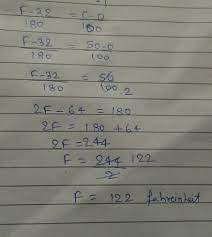 F-32 = C-0
180 100
F-32 = 50-0
180 100
F-32 = 50
180 100 2
2F - 64 = 180
2F = 180 + 64
2F = 244
F = 244 122
2
F = 122 fahrenheit